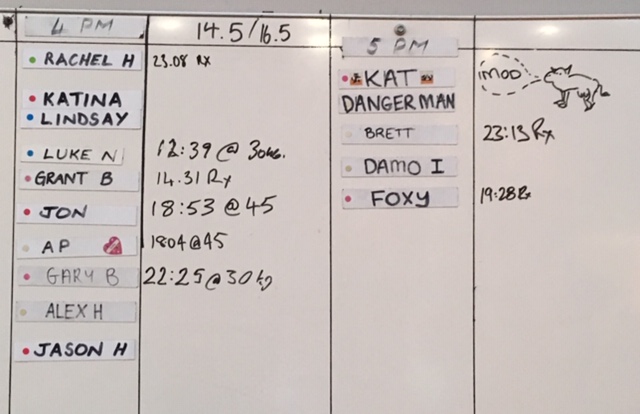 4 PM
14.5/16.5
RACHEL H 23.08 Rx
KATINA
LINDSAY
LUKE N 12:39 @ 30KG.
GRANT B 14.31 Rx
JON 18:53 @ 45
AP 1804@45
GARY B 22:25@30kg
ALEX H
JASON H
5 PM
KAT
iMOO
DANGERMAN
BRETT 23:13 Rx
DAMO I
FOXY 19:28 Rx